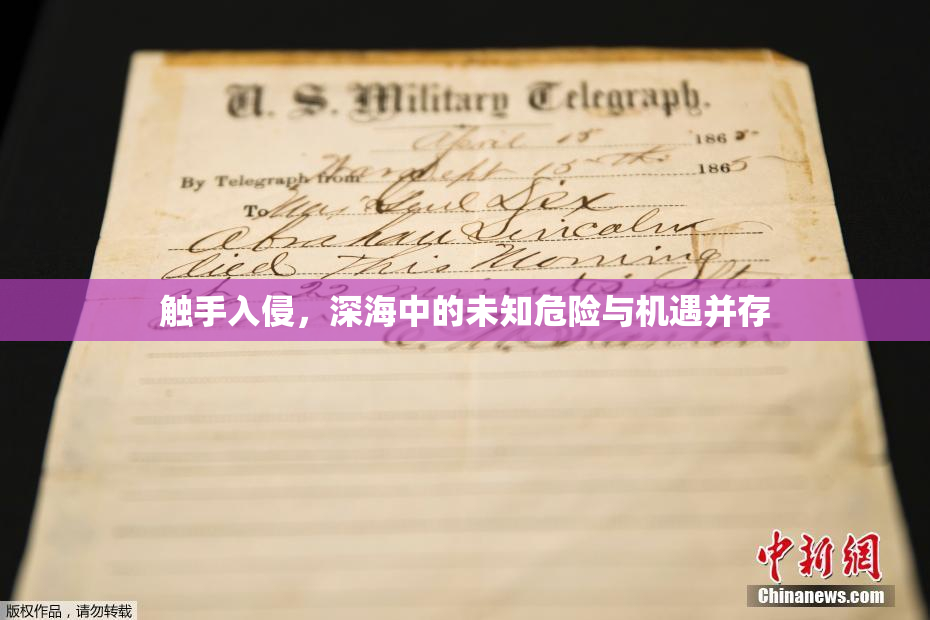 U. S. Military Telegraph.
April 15 1865
By Telegraph from War Dept 15th 1865
To Maj Genl Dix
Abraham Lincoln
died This Morning
at 22 minutes after
触手入侵，深海中的未知危险与机遇并存
E. M. Stanton
中新网
Chinanews.com
版权作品，请勿转载